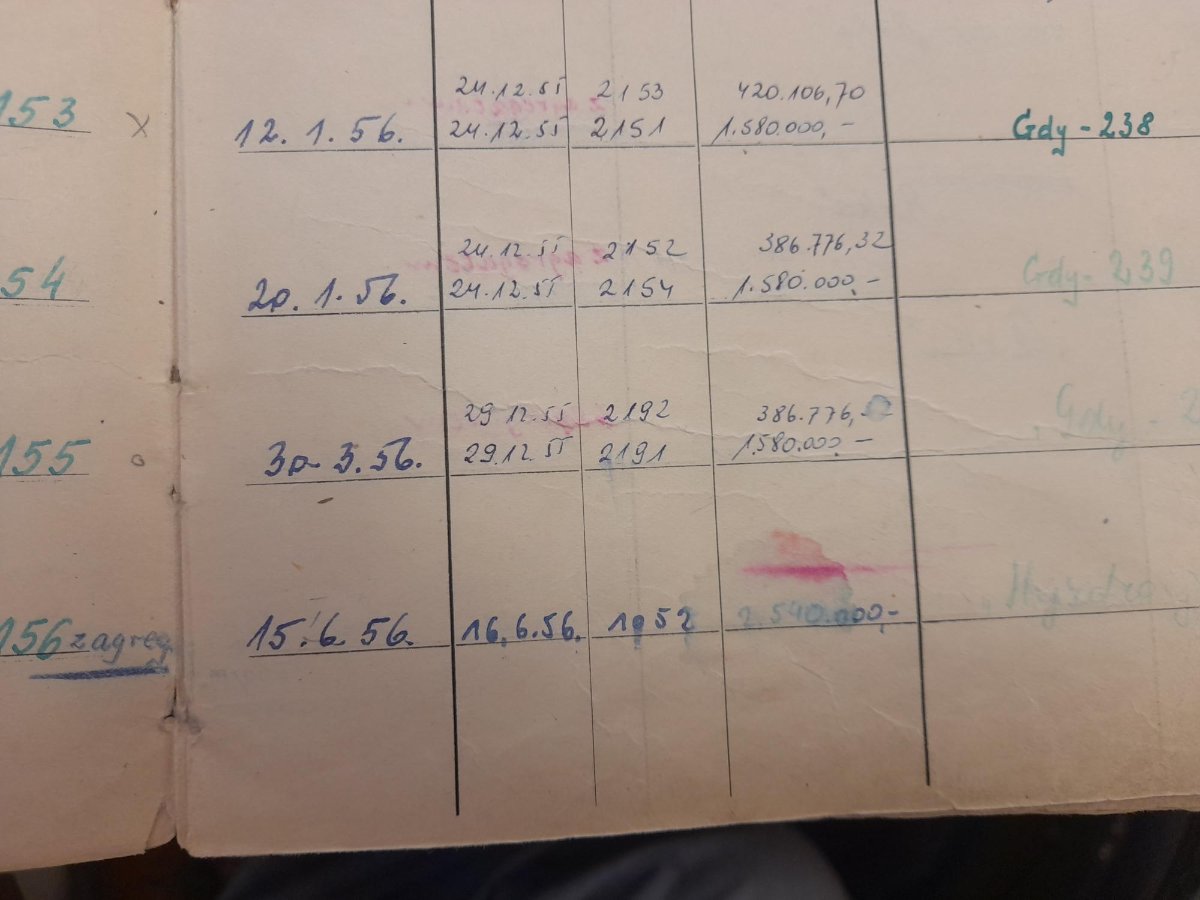 24.12.55 2153 420.106,70
153 x 12. 1. 56. 24.12.55 2151 1.580.000,- Gdy - 238
24.12.55 2152 386.776,32
54 20. 1. 56. 24.12.55 2154 1.580.000,- Gdy - 239
29 12.55 2192 386.776,
155 o 30- 3. 56. 29.12.55 2191 1580.000.- Gdy - 2
156 zagreg. 15. 6. 56. 16. 6. 56. 1952 2.540.000,-